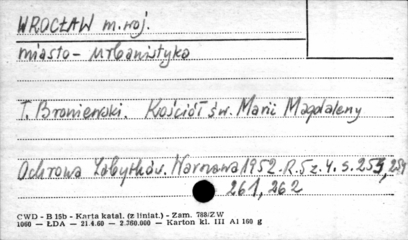 WROCŁAW m. woj.
miasto - urbanistyka
T. Broniewski. Kościół św. Marii Magdaleny
Ochrona Zabytków. Warszawa 1952. R. 5 z. 4. s. 255, 257
261, 262
CWD - B 15b - Karta katal. (z liniat.) - Zam. 788/ZW
1060 — ŁDA — 21.4.60 — 2.360.000 — Karton kl. III A1 160 g